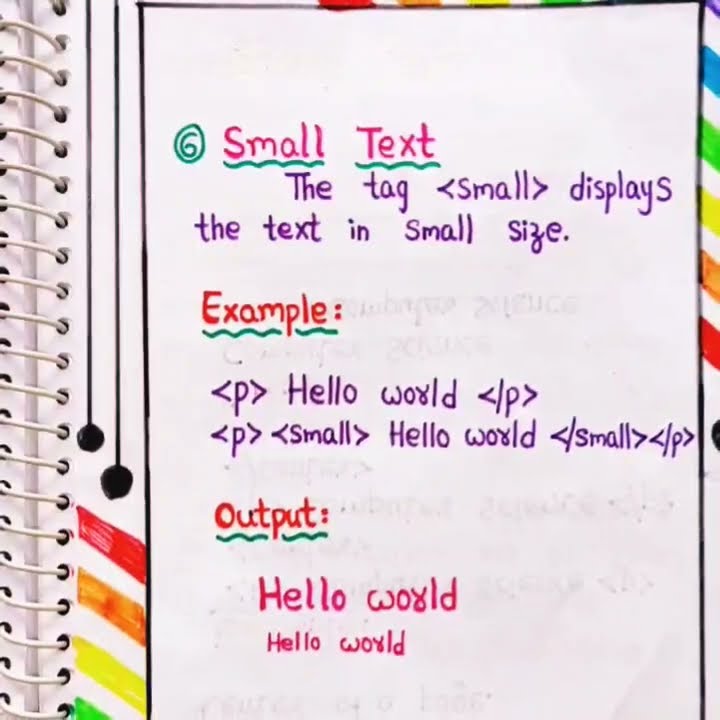 ⑥ Small Text
The tag <small> displays
the text in small size.
Example:
<p> Hello world </p>
<p><small> Hello world </small></p>
Output:
Hello world
Hello world